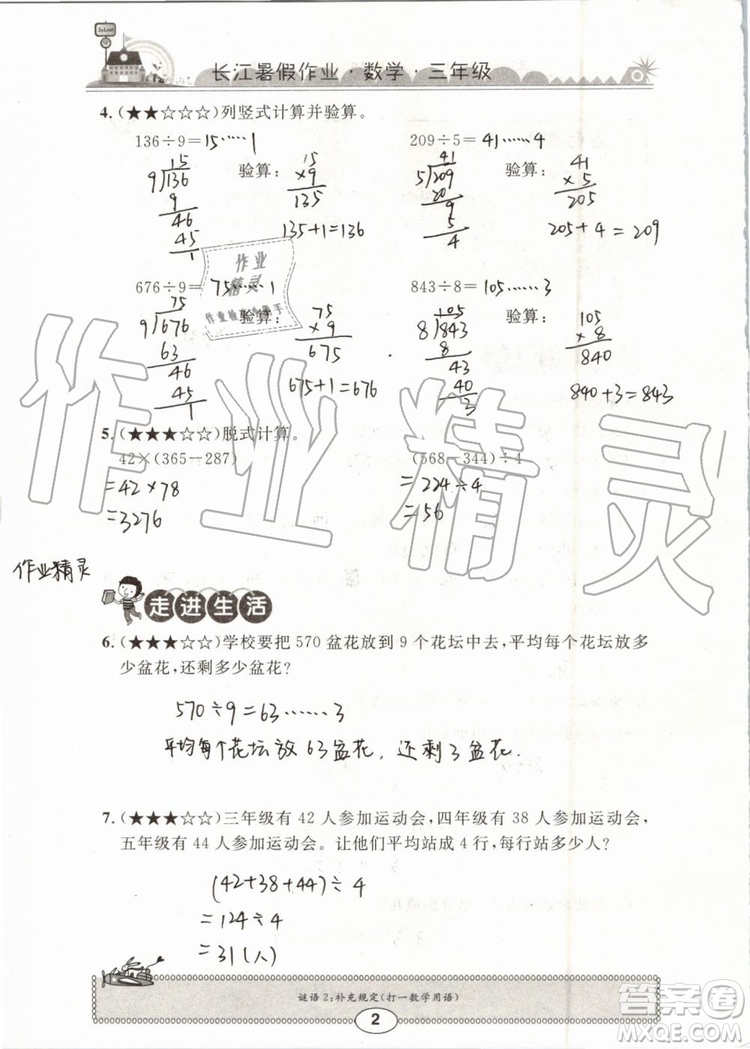 School
长江暑假作业·数学·三年级
4. (★★☆☆☆)列竖式计算并验算。
136÷9=15……1 209÷5=41……4
15 验算: 15 41 验算: 41
9)136 ×9 5)209 ×5
9 135 20 205
46 135+1=136 9 205+4=209
45 5
1 4
作业
精灵
作业检查小助手
676÷9=75……1 843÷8=105……3
75 验算: 75 105 验算: 105
9)676 ×9 8)843 ×8
63 675 8 840
46 675+1=676 43 840+3=843
45 40
1 3
5. (★★★☆☆)脱式计算。
42×(365-287) (568-344)÷4
=42×78 =224÷4
=3276 =56
作业精灵
作业精灵
走进生活
6. (★★★☆☆)学校要把 570 盆花放到 9 个花坛中去,平均每个花坛放多
少盆花,还剩多少盆花?
570÷9=63……3
平均每个花坛放63盆花,还剩3盆花.
7. (★★★☆☆)三年级有 42 人参加运动会,四年级有 38 人参加运动会,
五年级有 44 人参加运动会。让他们平均站成 4 行,每行站多少人?
(42+38+44)÷4
=124÷4
=31(人)
谜语2:补充规定(打一数学用语)
2
答案圈
MXQE.COM